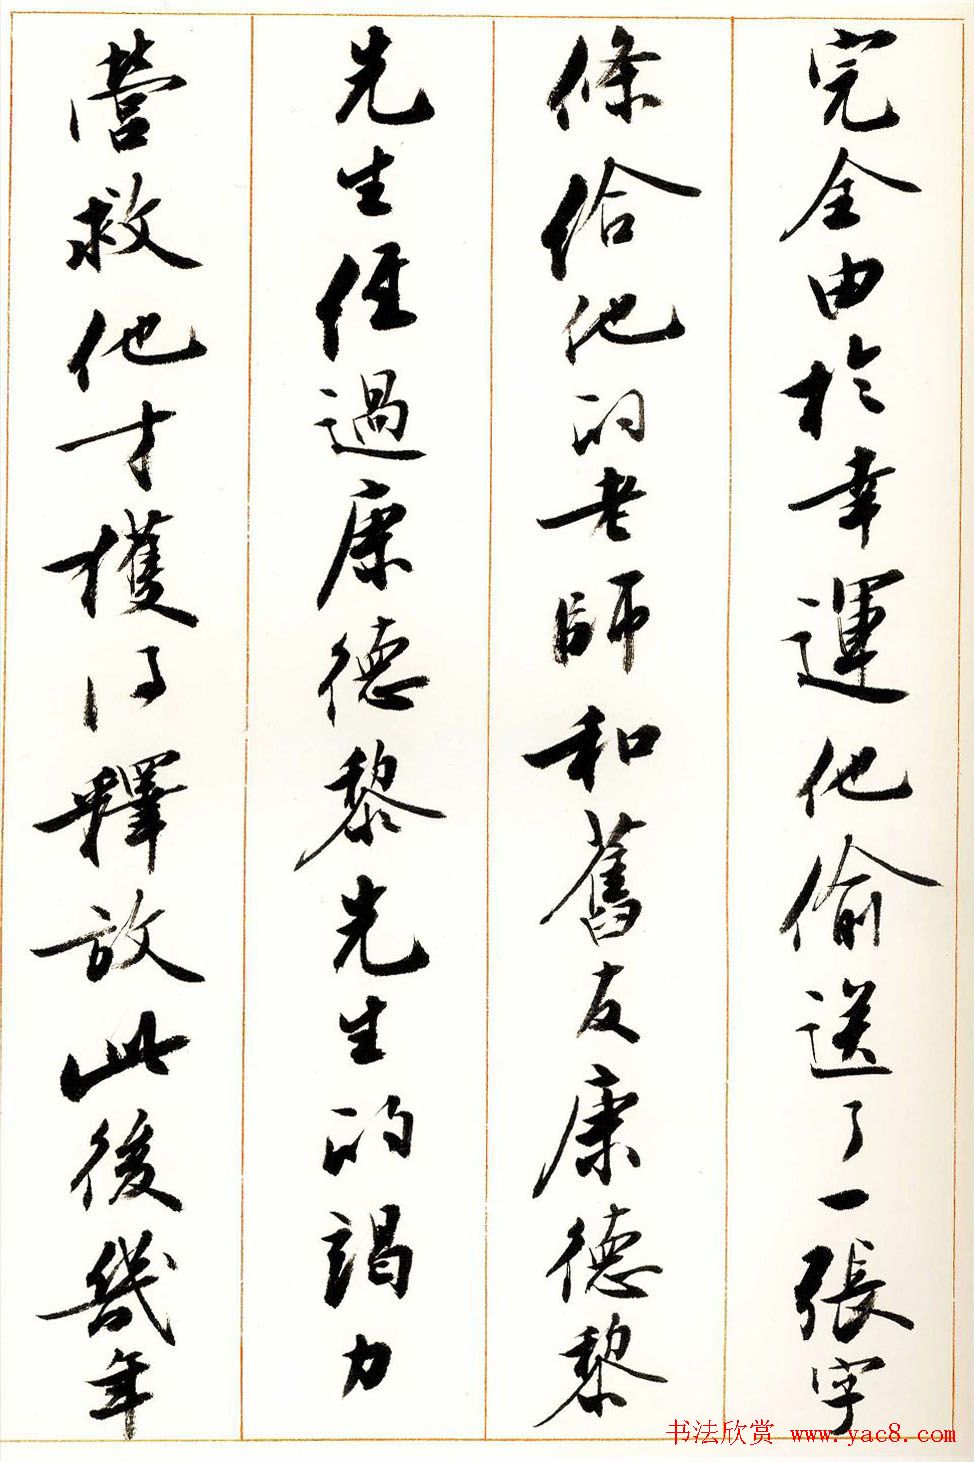 完全由於幸運他偷送了一張字
條給他的老師和舊友康德黎
先生任過康德黎先生的竭力
營救他才獲得釋放此後幾年
书法欣赏 www.yac8.com